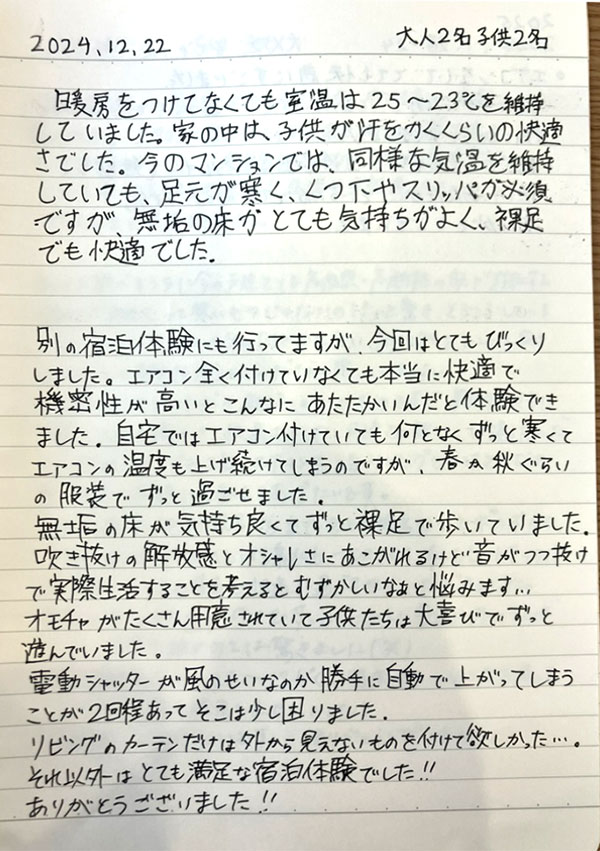 2024.12.22
大人2名子供2名
暖房をつけてなくても室温は25〜23℃を維持
していました。家の中は、子供が汗をかくくらいの快適
さでした。今のマンションでは、同様な気温を維持
していても、足元が寒く、くつ下やスリッパが必須
ですが、無垢の床がとても気持ちがよく、裸足
でも快適でした。
別の宿泊体験にも行ってますが、今回はとてもびっくり
しました。エアコン全く付けていなくても本当に快適で
機密性が高いとこんなにあたたかいんだと体験でき
ました。自宅ではエアコン付けていても何となくずっと寒くて
エアコンの温度も上げ続けてしまうのですが、春か秋ぐらい
の服装でずっと過ごせました。
無垢の床が気持ち良くてずっと裸足で歩いていました。
吹き抜けの解放感とオシャレさにあこがれるけど音がつつ抜け
で実際生活することを考えるとむずかしいなぁと悩みます…
オモチャがたくさん用意されていて子供たちは大喜びでずっと
遊んでいました。
電動シャッターが風のせいなのか勝手に自動で上がってしまう
ことが2回程あってそこは少し困りました。
リビングのカーテンだけは外から見えないものを付けて欲しかった…。
それ以外はとても満足な宿泊体験でした!!
ありがとうございました!!